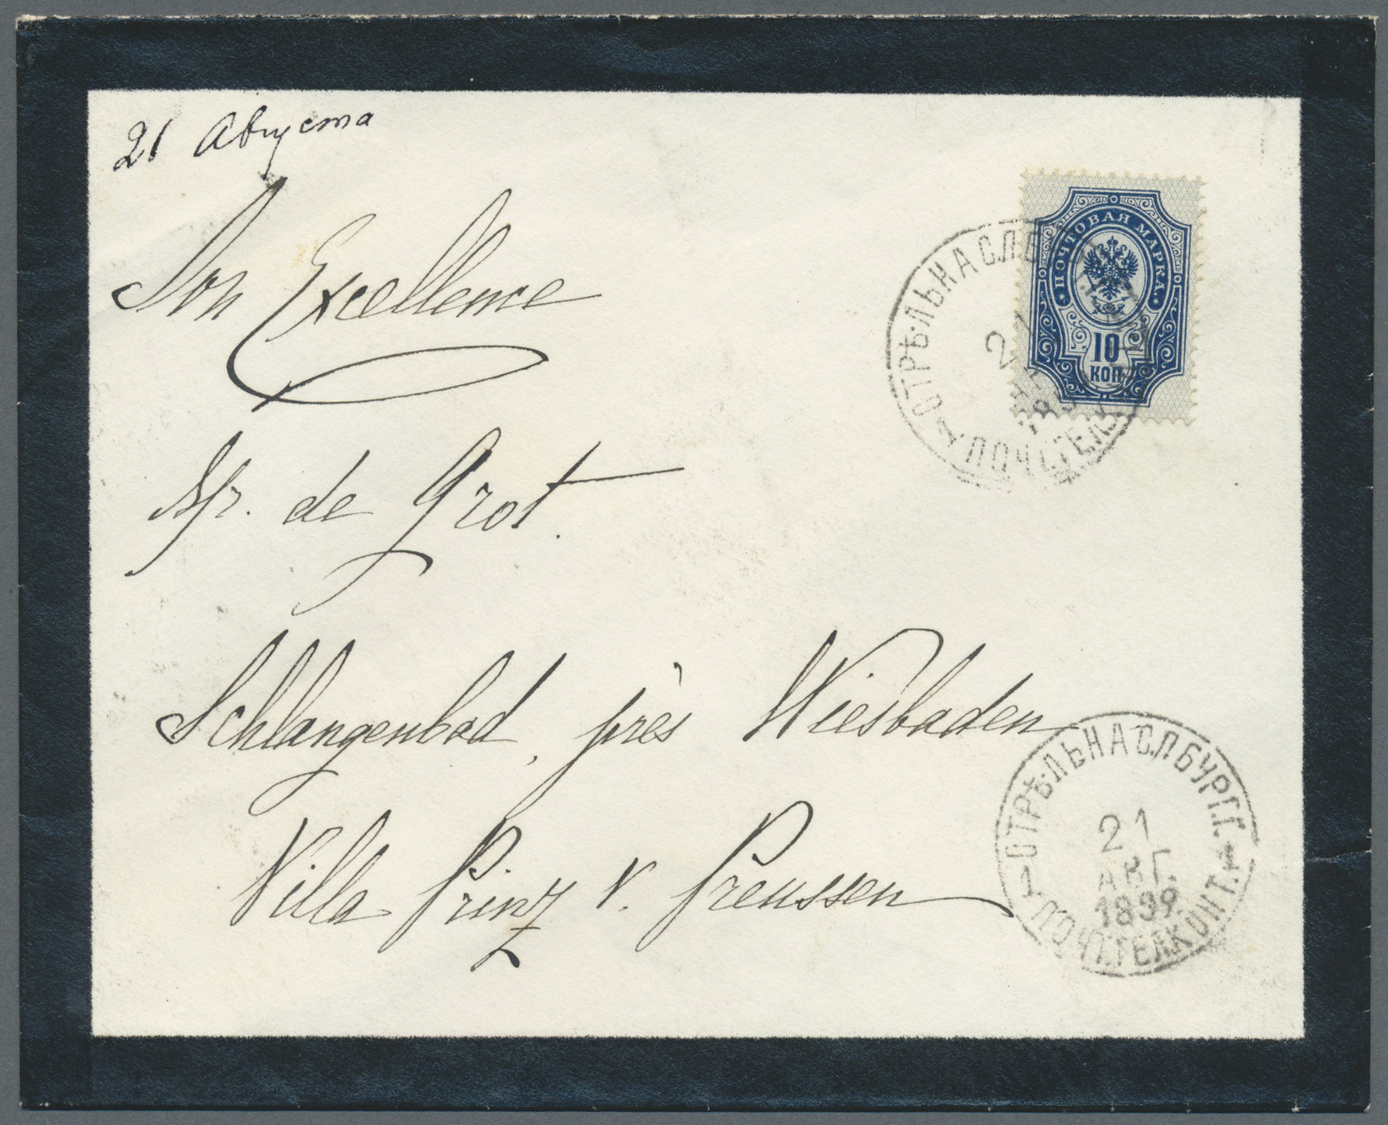 21 Августа
Son Excellence
Mr. de Grot.
Schlangenbad, près Wiesbaden
Villa Prinz v. Preussen
ПОЧТОВАЯ МАРКА
10
КОП.
СТРѢЛЬНА С.П.Б
21
189
ПОЧТ.ТЕЛ
СТРѢЛЬНА С.П.БУРГ.Г.
21
АВГ.
1899
ПОЧТ.ТЕЛ.КОНТ.